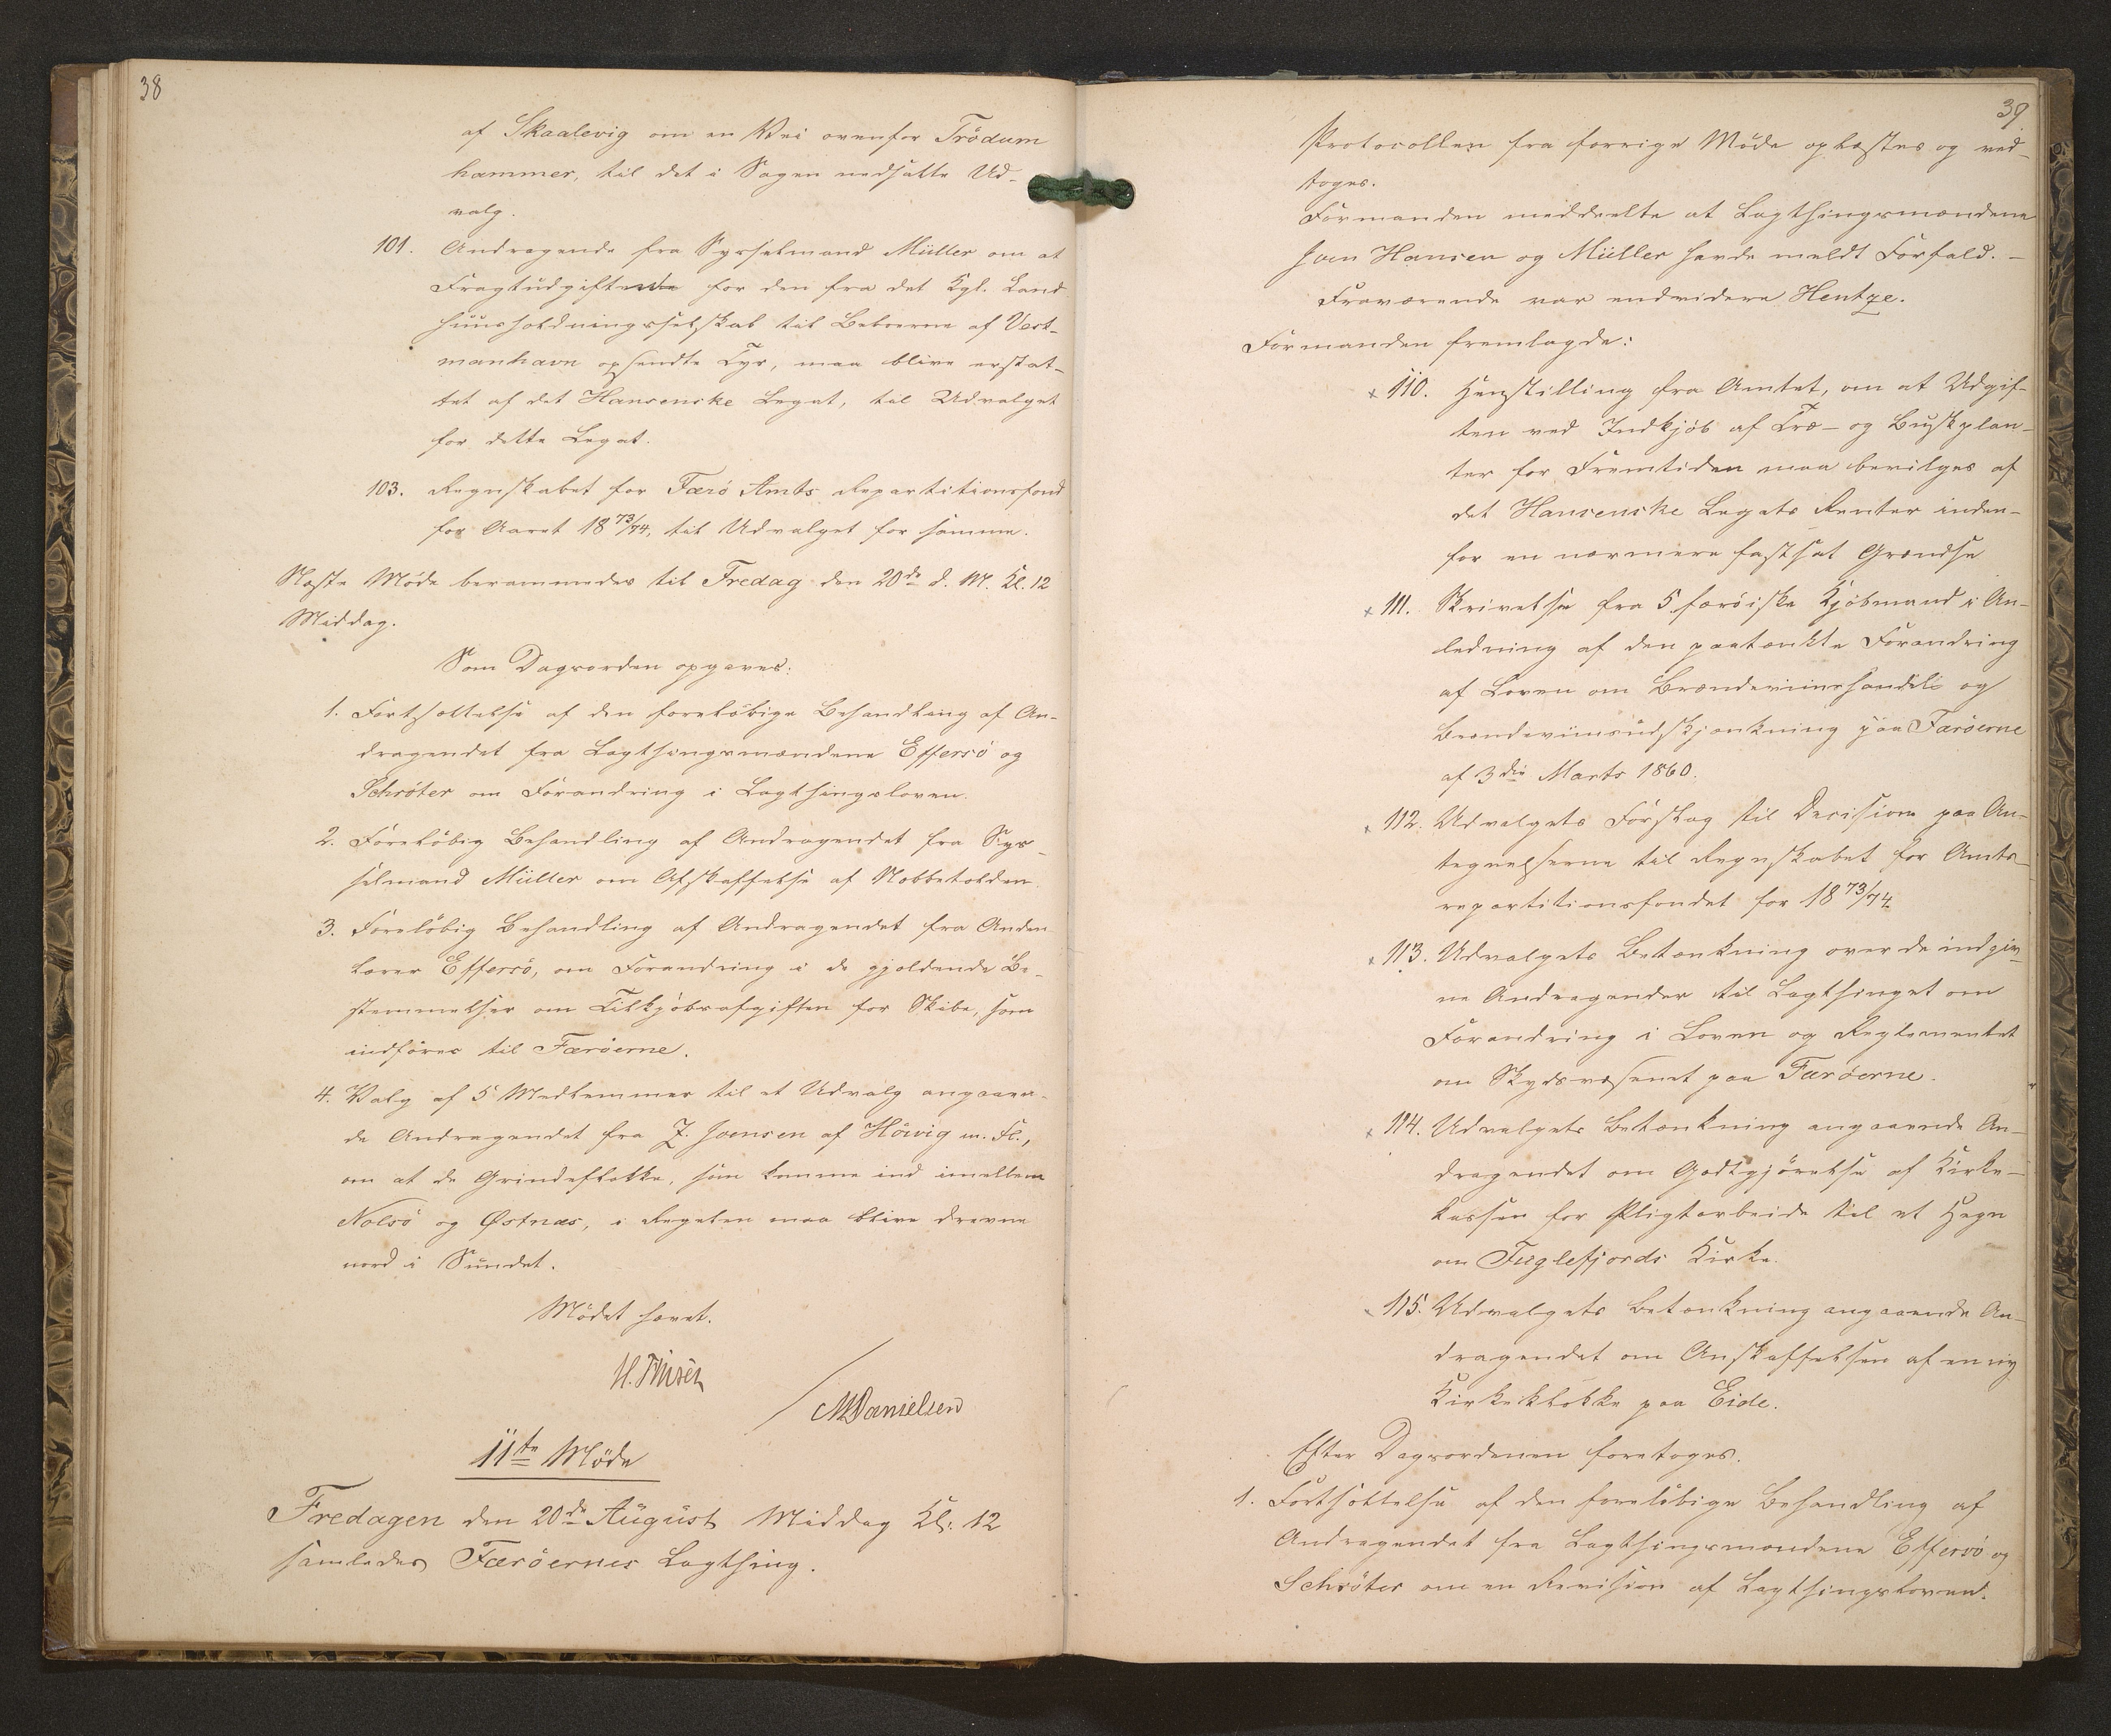 38
af Skaalevig om en Vei ovenfor Trödum
hammer, til det i Sagen nedsatte Ud-
valg.
101. Andragende fra Sysselmand Müller om at
Fragtudgifterne for den fra det Kgl. Land
huusholdningsselskab til Beboerne af Vest-
manhavn opsendte Tyr, maa blive erstat-
tet af det Hansenske Legat, til Udvalget
for dette Legat.
103. Regnskabet for Færö Amts Repartitionsfond
for Aaret 18 73/74, til Udvalget for samme.
Næste Möde berammedes til Fredag den 20de d. M. Kl. 12
Middag.
Som Dagsorden opgaves:
1. Fortsættelse af den foreløbige Behandling af An-
dragendet fra Lagthingsmændene Effersö og
Schröter om Forandring i Lagthingsloven.
2. Foreløbig Behandling af Andragendet fra Sys-
selmand Müller om Afskaffelse af Nebbetolden.
3. Foreløbig Behandling af Andragendet fra Anden
lærer Effersö, om Forandring i de gjældende Be-
stemmelser om Tilkjöbsafgiften for Skibe, som
indföres til Færöerne.
4. Valg af 5 Medlemmer til et Udvalg angaaen-
de Andragendet fra J. Joensen af Höivig m. Fl.,
om at de Grindeflokke, som komme ind imellem
Nolsö og Østnæs, i Regelen maa blive drevne
nord i Sundet.
Mödet hævet.
H. Finsen
MDanielsen
11te Möde
Fredagen den 20de August Middag Kl. 12
samledes Færöernes Lagthing.
39
Protocollen fra forrige Möde oplæstes og ved-
toges.
Formanden meddeelte at Lagthingsmændene
Joen Hansen og Müller havde meldt Forfald. –
Fraværende var endvidere Hentze.
Formanden fremlagde:
x 110. Henstilling fra Amtet, om at Udgif-
ten ved Indkjöb af Træ- og Buskplan-
ter for Fremtiden maa bevilges af
det Hansenske Legats Renter inden-
for en nærmere fastsat Grændse
x 111. Skrivelse fra 5 færöiske Kjöbmænd i An-
ledning af den paatænkte Forandring
af Loven om Brændeviinshandel og
Brændeviinsudskjænkning paa Færöerne
af 3die Marts 1860.
x 112. Udvalgets Forslag til Decision paa An-
tegnelserne til Regnskabet for Amts-
repartitionsfondet for 18 73/74
x 113. Udvalgets Betænkning over de indgiv-
ne Andragender til Lagthinget om
Forandring i Loven og Reglementet
om Skydsvæsenet paa Færöerne.
x 114. Udvalgets Betænkning angaaende An-
dragendet om Godtgjörelse af Kirke-
kassen for Pligtarbeide til et Hegn
om Fuglefjords Kirke.
x 115. Udvalgets Betænkning angaaende An-
dragendet om Anskaffelsen af en ny
Kirkeklokke paa Eide.
Efter Dagsordenen foretoges.
1. Fortsættelse af den foreløbige Behandling af
Andragendet fra Lagthingsmændene Effersö og
Schröter om en Revision af Lagthingsloven.